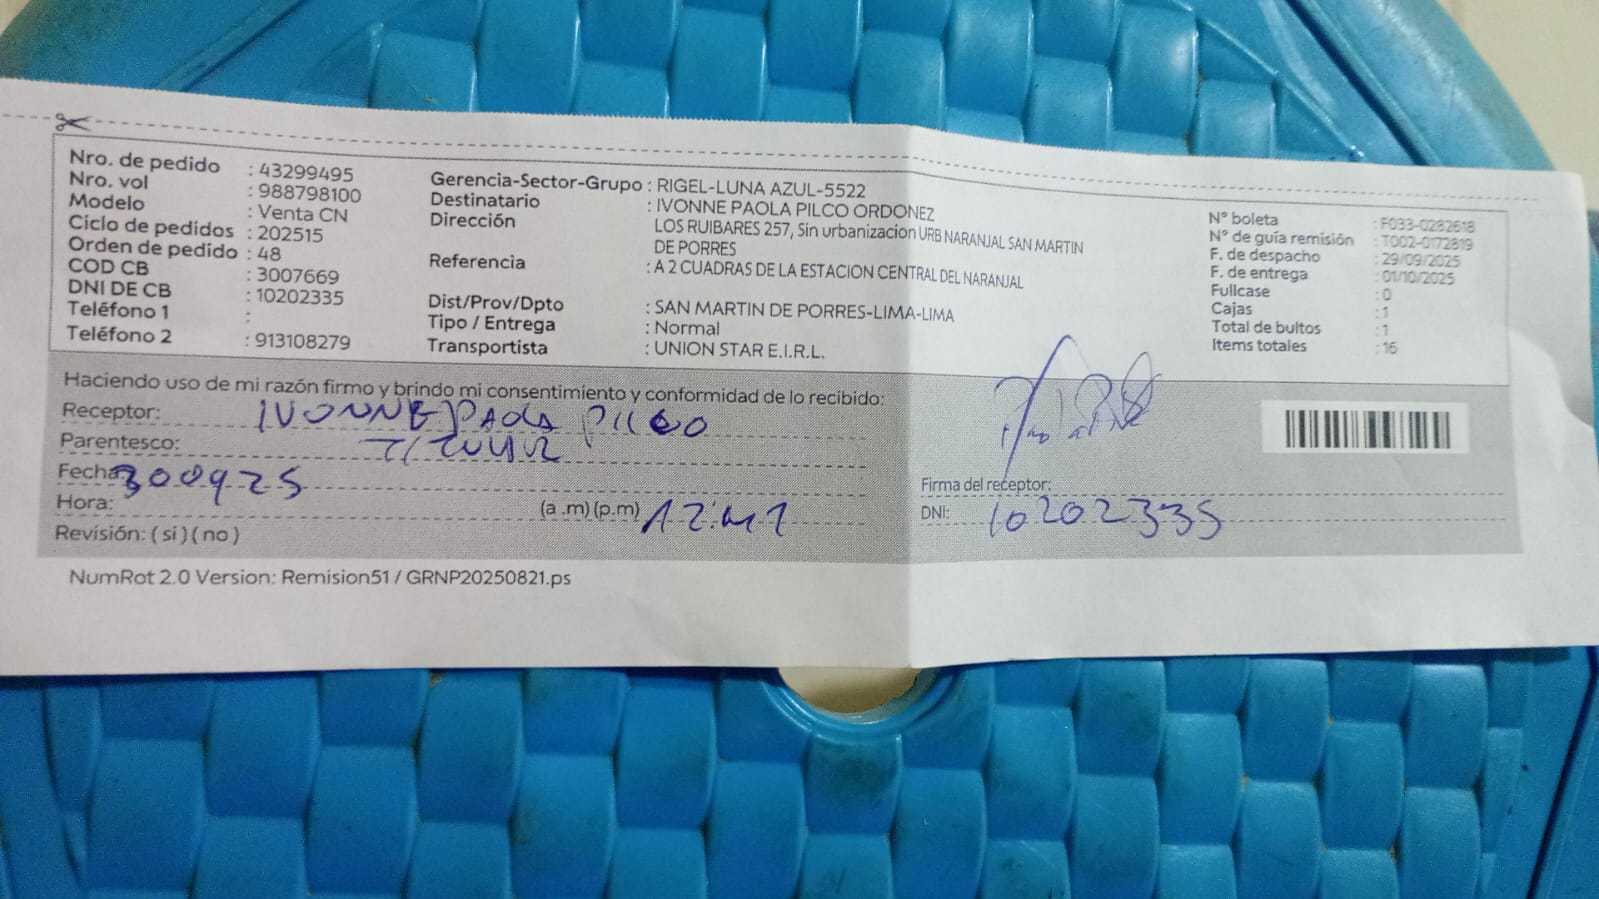 Nro. de pedido : 43299495
Nro. vol : 988798100
Modelo : Venta CN
Ciclo de pedidos : 202515
Orden de pedido : 48
COD CB : 3007669
DNI DE CB : 10202335
Teléfono 1 :
Teléfono 2 : 913108279
Gerencia-Sector-Grupo : RIGEL-LUNA AZUL-5522
Destinatario : IVONNE PAOLA PILCO ORDONEZ
Dirección LOS RUIBARES 257, Sin urbanizacion URB NARANJAL SAN MARTIN
DE PORRES
Referencia : A 2 CUADRAS DE LA ESTACION CENTRAL DEL NARANJAL
Dist/Prov/Dpto : SAN MARTIN DE PORRES-LIMA-LIMA
Tipo / Entrega : Normal
Transportista : UNION STAR E.I.R.L.
N° boleta : F033-0282618
N° de guía remisión : T002-0172819
F. de despacho : 29/09/2025
F. de entrega : 01/10/2025
Fullcase : 0
Cajas : 1
Total de bultos : 1
Items totales : 16
Haciendo uso de mi razón firmo y brindo mi consentimiento y conformidad de lo recibido:
Receptor: IVONNE PAOLA PILCO
Parentesco:
Fecha: 300925
Hora: (a .m) (p.m)
Revisión: ( si ) ( no )
Firma del receptor:
DNI: 10202335
NumRot 2.0 Version: Remision51 / GRNP20250821.ps